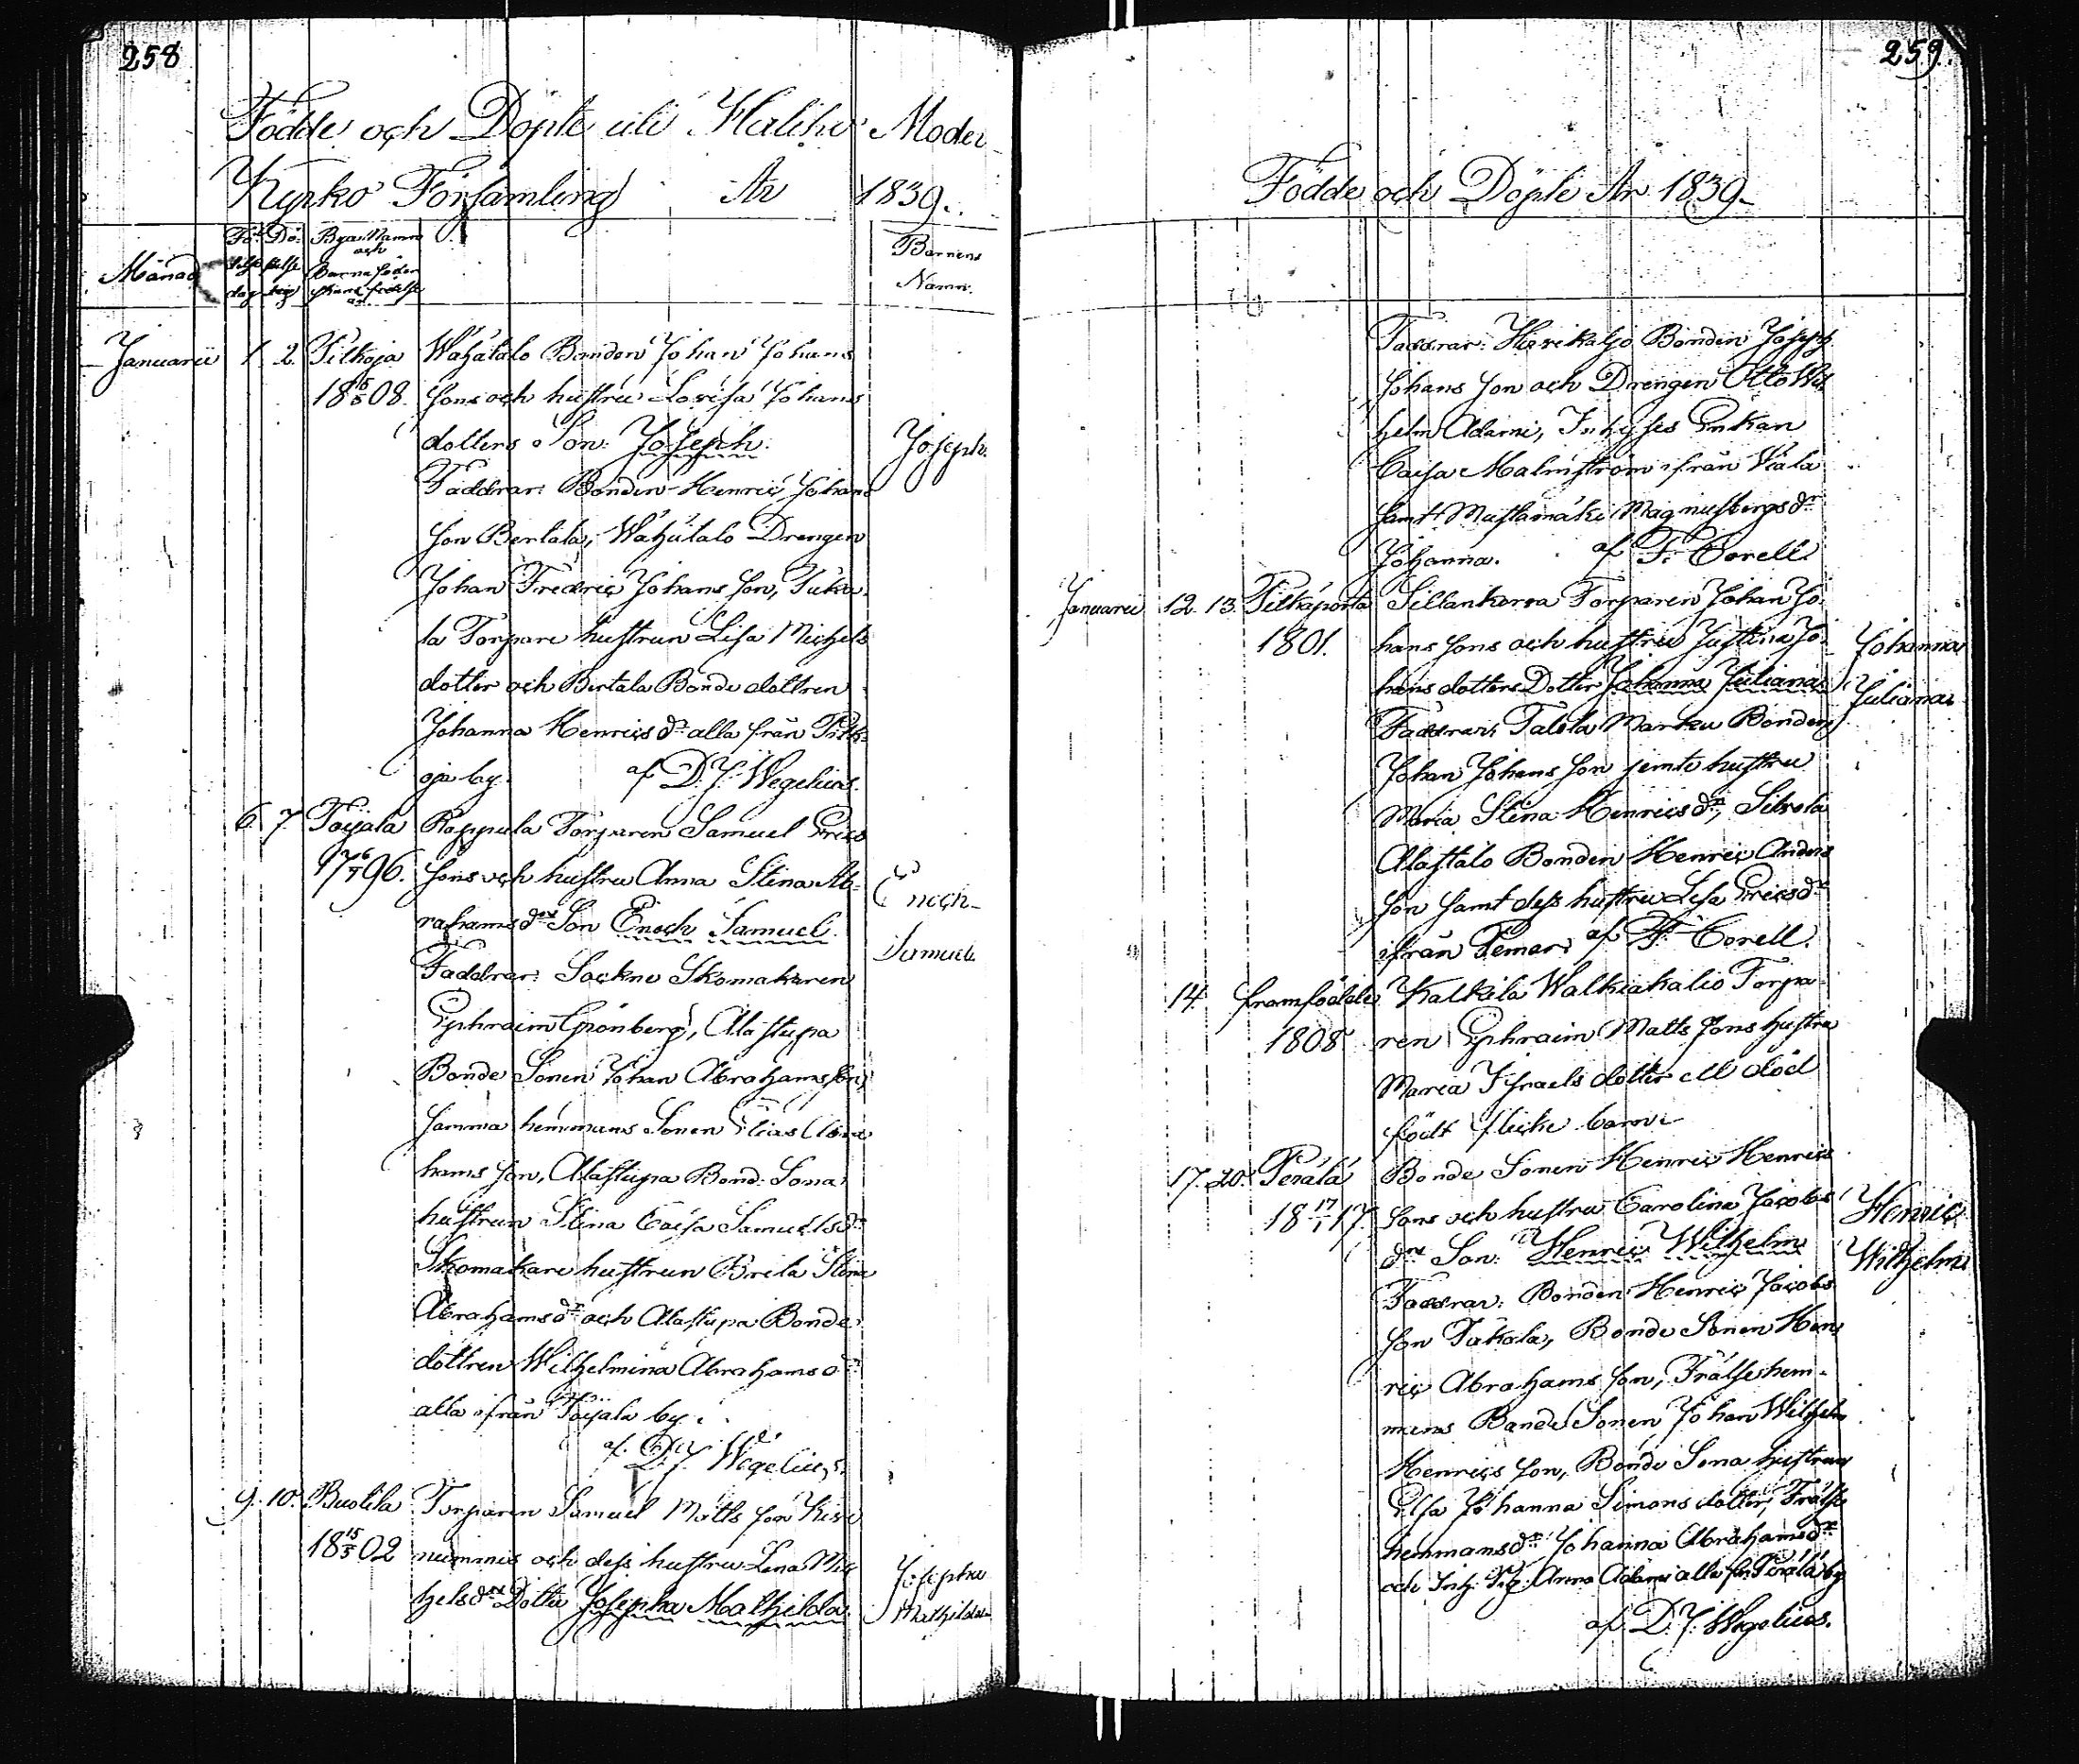 258
Födde och Döpte uti Haliko Moder
Kyrko Församling År 1839.
Månad
Fö- Dö- Byars Namn
och
delse pelse Barnaföder
dag dag skans födelse
år
Barnens
Namn.
Januarii 1. 2. Pitkoja Wähätalo Bonden Johan Johans
18 08. sons och hustru Lovisa Johans
dotters Son: Joseph. Joseph.
Faddrar: Bonden Henric Johans
son Bertala, Wähätalo Drengen
Johan Fredric Johans son, Tuka
la Torpare hustrun Lisa Michels
dotter och Bertala Bonde dottren
Johanna Henricsdr alla från Pitk
oja by. af D. J. Wegelius.
6. 7. Toijala Rappula Torparen Samuel Erics
17 6/1 96. sons och hustru Anna Stina Ab-
rahamsdrs Son Enoch Samuel. Enoch
Samuel
Faddrar: Sockne Skomakaren
Ephraim Grönberg, Alastupa
Bonde Sonen Johan Abrahamsson,
samma hemmans Sonen Elias Abra
hams son, Alastupa Bond. Sona
hustrun Stina Caisa Samuelsdr
Skomakare hustrun Brita Stina
Abrahamsdr och Alastupa Bonde
dottren Wilhelmina Abrahamsdr
alla ifrån Toijala by.
af D. J. Wegelius.
9. 10. Buotila Torparen Samuel Matts son Kise
18 15/3 02 nummis och dess hustru Lena Mic
helsdrs Dotter Josepha Mathilda. Josepha
Mathilda
259.
Födde och Döpte År 1839.
Faddrar: Hirikaljo Bonden Joseph
Johans son och Drengen Otto Wil
helm Adami, Inhyses Enkan
Caisa Malmström ifrån Viala
samt Mustamäki Magnusbergsdr
Johanna. af F. Corell.
Januarii 12. 13. Pitkäporta Sillankorva Torparen Johan Jo-
1801. hans sons och hustru Justina Jo- Johanna
hans dotters Dotter Johanna Juliana. Juliana
Faddrar: Talola Marku Bonden
Johan Johans son jemte hustru
Maria Stina Henricsdr,
Alastalo Bonden Henric Anders
son samt dess hustru Lisa Ericsdr
ifrån Pemar. af F. Corell.
14. framfödde Kalkila Walkiakalio Torpa
1808 ren Ephraim Matts sons hustru
Maria Israels dotter ett död
födt flicke barn.
17. 20. Perälä Bonde Sonen Henric Henrics
18 17/1 17. sons och hustru Carolina Jacobs Henric
drs Son: Henric Wilhelm Wilhelm
Faddrar: Bonden Henric Jacobs
son Takala, Bonde Sonen Hen
ric Abrahams son, Frälsehem-
mans Bonde Sonen Johan Wilhelm
Henrics son, Bonde Sona hustrun
Elsa Johanna Simons dotter, Frälse
hemmansdr Johanna Abrahamsdr
och Inh. Anna Adami alla fr. Perälä by
af D. J. Wegelius.